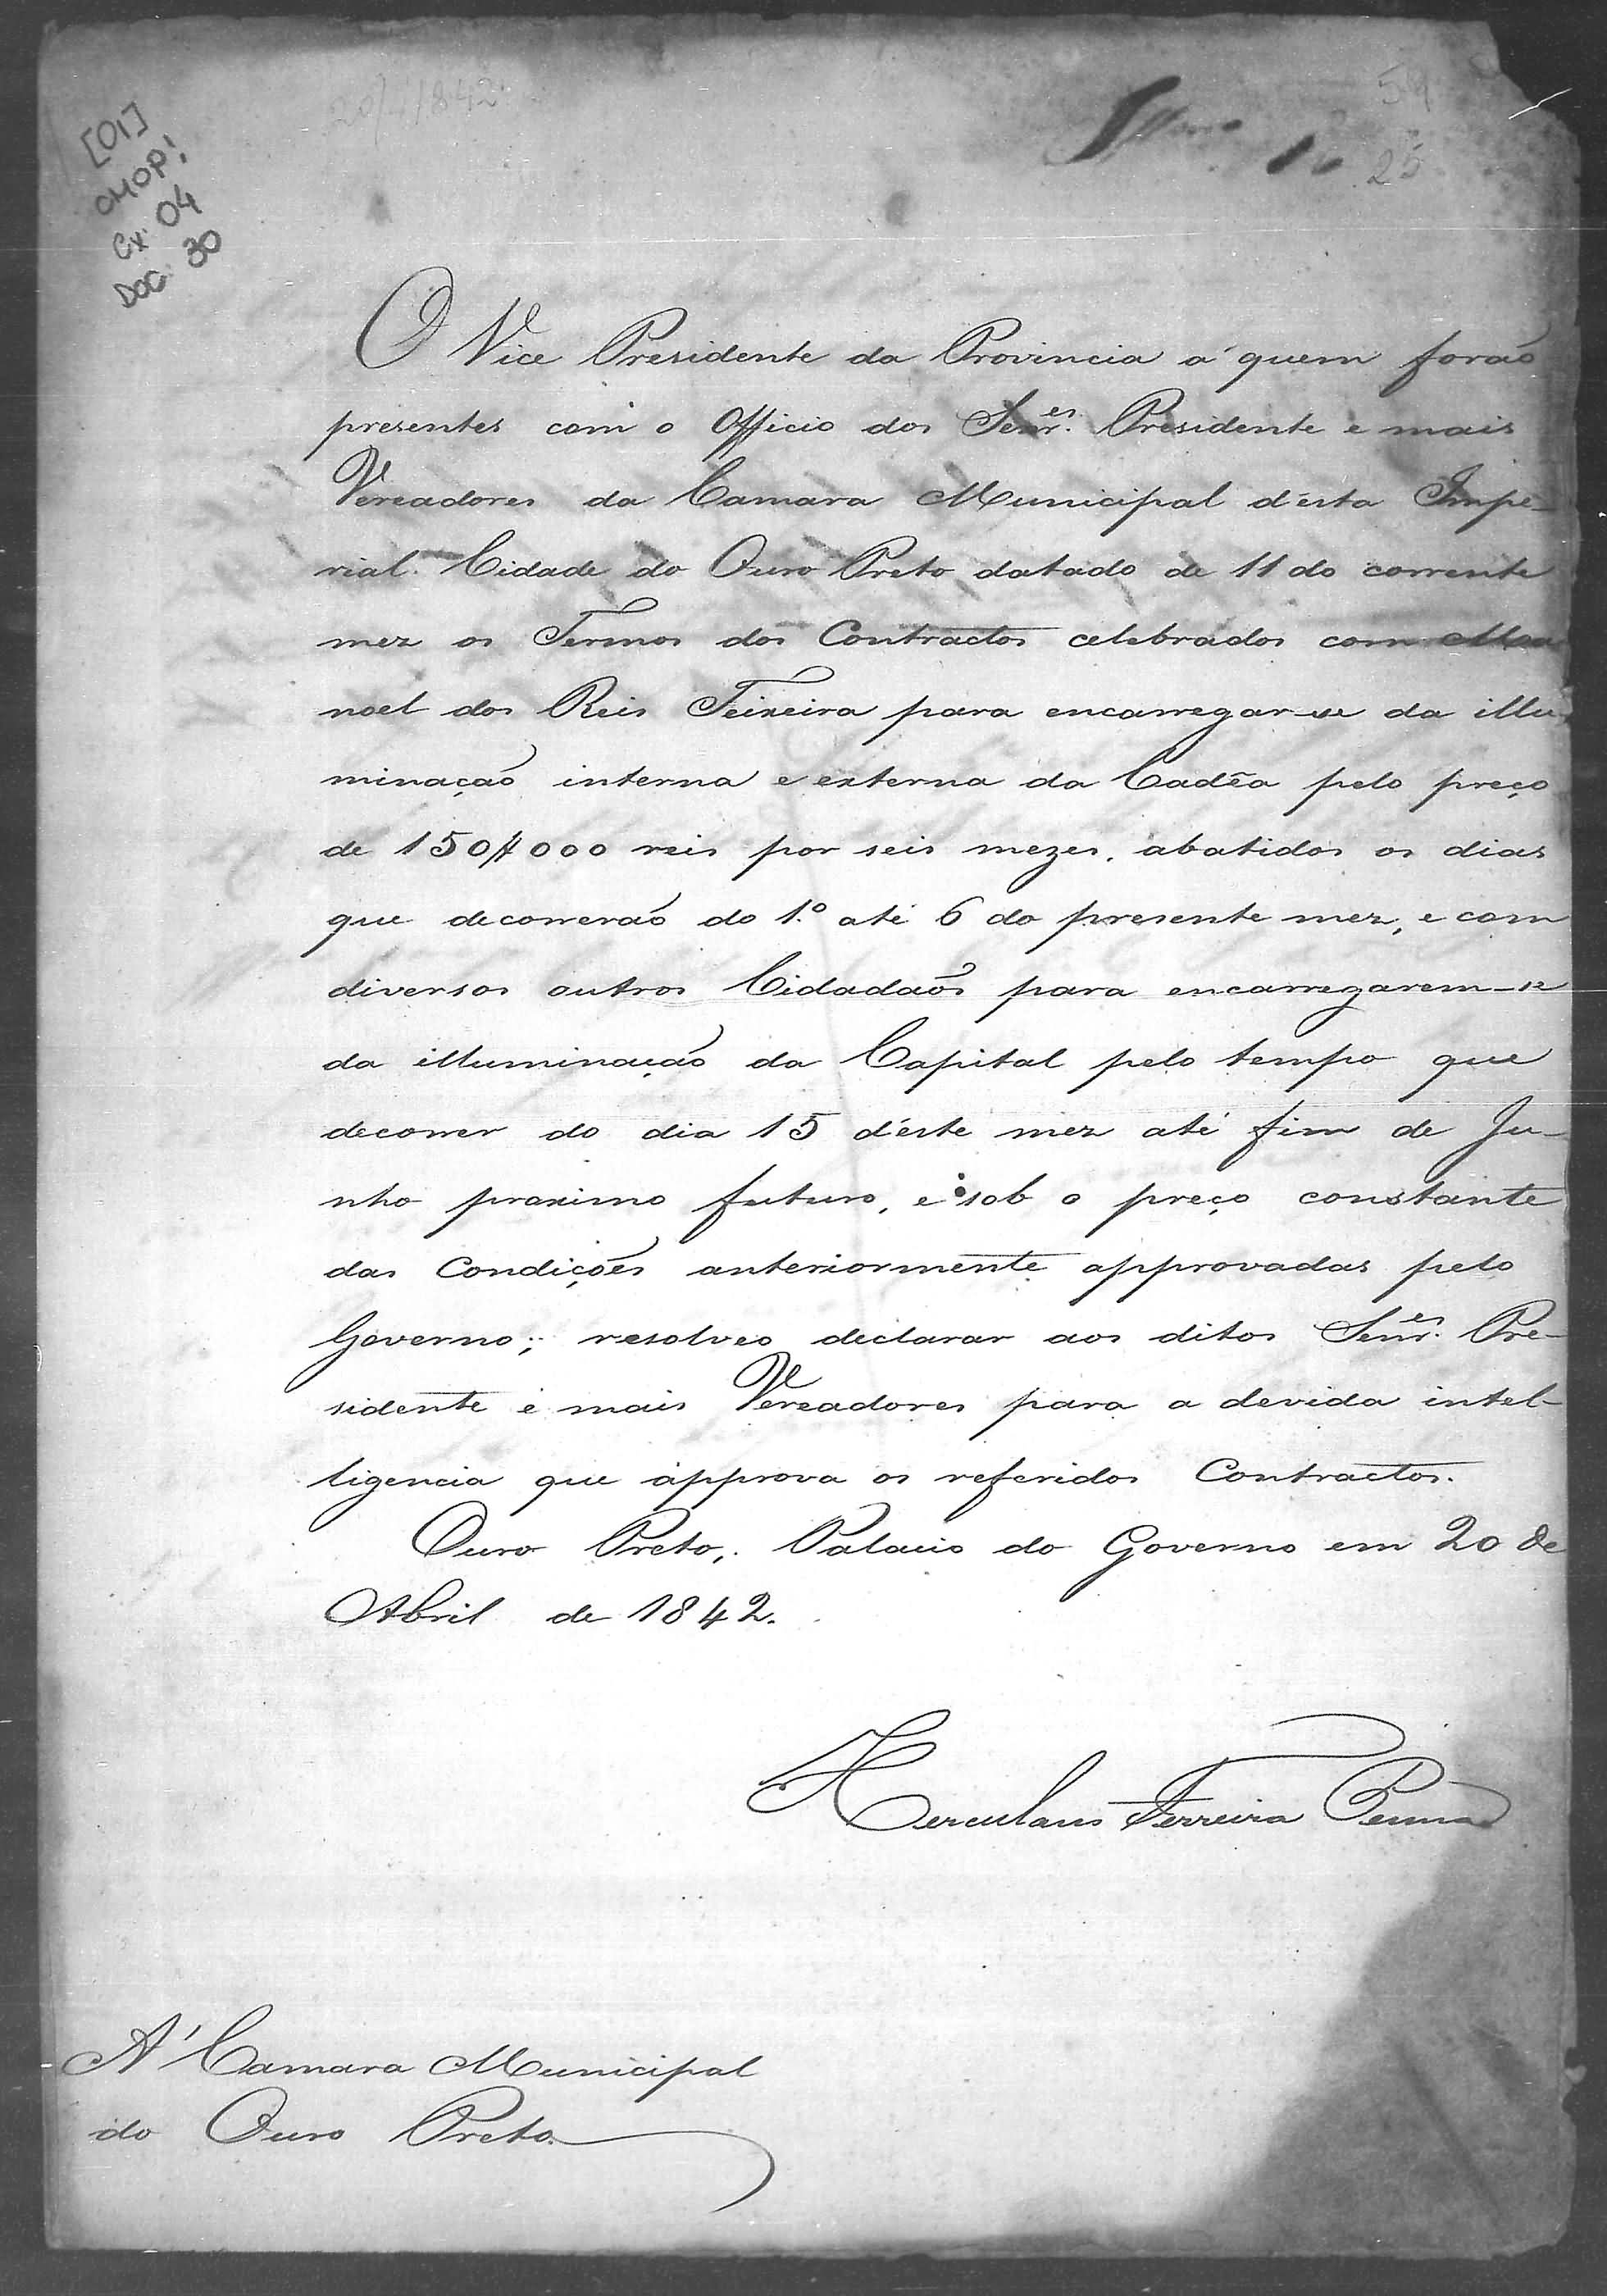 20/4/842
54
25
[01]
CMOP!
Cx. 04
DOC. 30
O Vice Presidente da Provincia a' quem forão
presentes com o Officio dos Senr.es Presidente e mais
Vereadores da Camara Municipal d'esta Impe-
rial Cidade do Ouro Preto datado de 11 do corrente
mez os Termos dos Contractos celebrados com Ma
noel dos Reis Teixeira para encarregar-se da illu-
minação interna e externa da Cadêa pelo preço
de 150$000 reis por seis mezes, abatidos os dias
que decorrerão do 1.º até 6 do presente mez, e com
diversos outros Cidadaõs para encarregarem-se
da illuminação da Capital pelo tempo que
decorrer do dia 15 d'éste mez até fim de Ju-
nho proximo futuro, e sob o preço constante
das Condições anteriormente approvadas pelo
Governo; resolveo declarar aos ditos Senr.es Pre-
sidente e mais Vereadores para a devida intel-
ligencia que approva os referidos Contractos.
Ouro Preto, Palacio do Governo em 20 de
Abril de 1842.
Herculano Ferreira Penna
A' Camara Municipal
do Ouro Preto